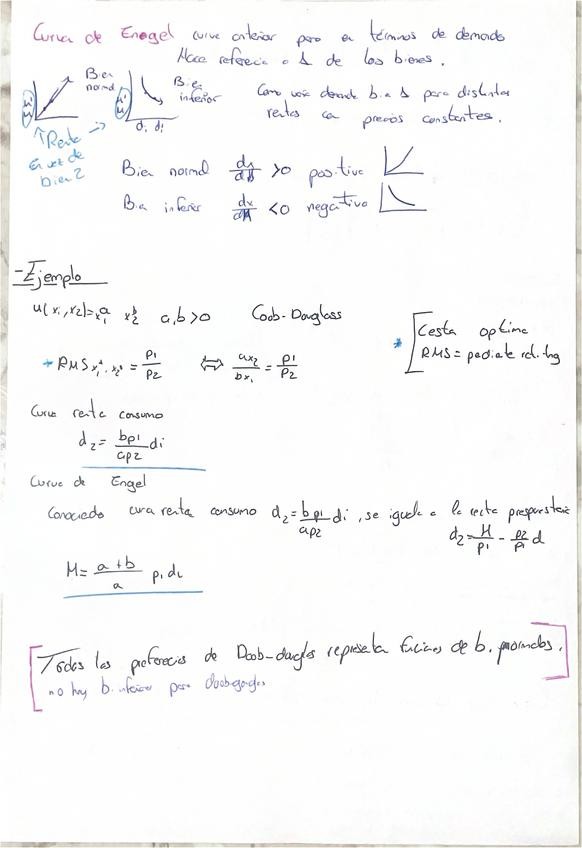 Curva de Enegel curva anterior pero en términos de demanda
Hace referencia a 1 de los bienes.
Bien normal
Bien inferior
M' M
M' M
di di
↑ Renta →
En vez de
bien 2
Como varía demanda b.a 1 para distintas
rentas con precios constantes.
Bien normal dx/dM >0 positiva
B.n inferior dx/dM <0 negativa
- Ejemplo
u(x1,x2)=x1^a x2^b a,b>0 Coob-Douglass
* RMS x1^a, x2^b = p1/p2 ⇔ ax2/bx1 = p1/p2
* Cesta optima
RMS = pediate rel. tng
Curva renta consumo
d2= bp1/ap2 di
Curva de Engel
Conociendo curva renta consumo d2= b p1/ap2 di, se iguala a la recta presupuestaria
d2= M/p1 - p2/p1 d
M= a+b/a p1 di
Todas las preferecias de Doob-douglas representa funciones de b. normales.
no hay b. inferior para doobgoogles